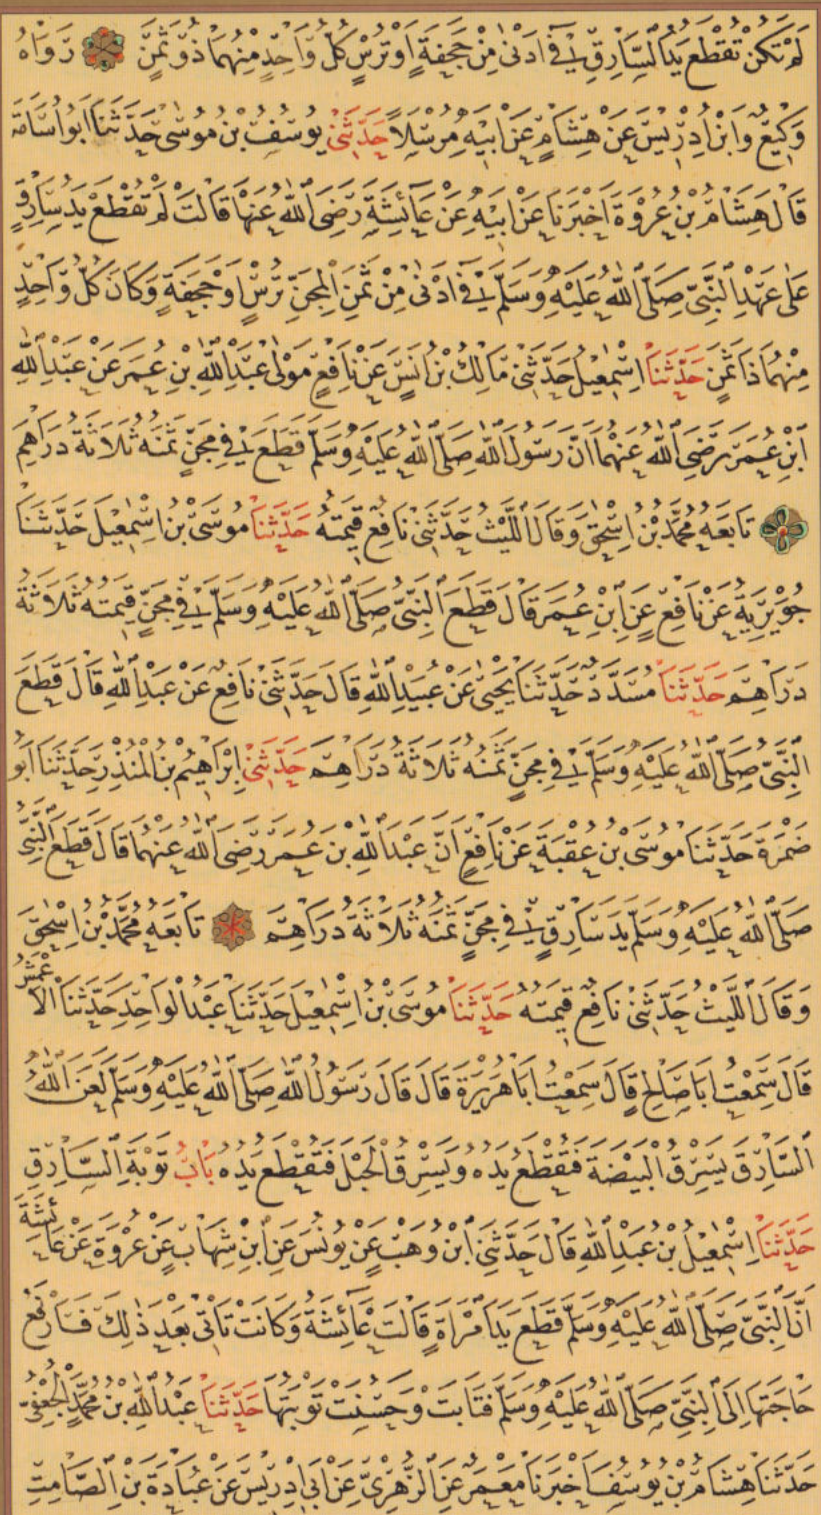 لَمْ تَكُنْ تُقْطَعُ يَدُ السَّارِقِ فِي أَدْنَى مِنْ حَجَفَةٍ أَوْ تُرْسٍ كُلُّ وَاحِدٍ مِنْهُمَا ذُو ثَمَنٍ رَوَاهُ
وَكِيعٌ وَابْنُ إِدْرِيسَ عَنْ هِشَامٍ عَنْ أَبِيهِ مُرْسَلًا حَدَّثَنِي يُوسُفُ بْنُ مُوسَى حَدَّثَنَا أَبُو أُسَامَةَ
قَالَ هِشَامُ بْنُ عُرْوَةَ أَخْبَرَنَا عَنْ أَبِيهِ عَنْ عَائِشَةَ رَضِيَ اللَّهُ عَنْهَا قَالَتْ لَمْ تُقْطَعْ يَدُ سَارِقٍ
عَلَى عَهْدِ النَّبِيِّ صَلَّى اللَّهُ عَلَيْهِ وَسَلَّمَ فِي أَدْنَى مِنْ ثَمَنِ الْمِجَنِّ تُرْسٍ أَوْ حَجَفَةٍ وَكَانَ كُلُّ وَاحِدٍ
مِنْهُمَا ذَا ثَمَنٍ حَدَّثَنَا إِسْمٰعِيلُ حَدَّثَنِي مَالِكُ بْنُ أَنَسٍ عَنْ نَافِعٍ مَوْلَى عَبْدِ اللَّهِ بْنِ عُمَرَ عَنْ عَبْدِ اللَّهِ
ابْنِ عُمَرَ رَضِيَ اللَّهُ عَنْهُمَا أَنَّ رَسُولَ اللَّهِ صَلَّى اللَّهُ عَلَيْهِ وَسَلَّمَ قَطَعَ فِي مِجَنٍّ ثَمَنُهُ ثَلَاثَةُ دَرَاهِمَ
تَابَعَهُ مُحَمَّدُ بْنُ إِسْحٰقَ وَقَالَ اللَّيْثُ حَدَّثَنِي نَافِعٌ قِيمَتُهُ حَدَّثَنَا مُوسَى بْنُ إِسْمٰعِيلَ حَدَّثَنَا
جُوَيْرِيَةُ عَنْ نَافِعٍ عَنِ ابْنِ عُمَرَ قَالَ قَطَعَ النَّبِيُّ صَلَّى اللَّهُ عَلَيْهِ وَسَلَّمَ فِي مِجَنٍّ قِيمَتُهُ ثَلَاثَةُ
دَرَاهِمَ حَدَّثَنَا مُسَدَّدٌ حَدَّثَنَا يَحْيَى عَنْ عُبَيْدِ اللَّهِ قَالَ حَدَّثَنِي نَافِعٌ عَنْ عَبْدِ اللَّهِ قَالَ قَطَعَ
النَّبِيُّ صَلَّى اللَّهُ عَلَيْهِ وَسَلَّمَ فِي مِجَنٍّ ثَمَنُهُ ثَلَاثَةُ دَرَاهِمَ حَدَّثَنِي إِبْرَاهِيمُ بْنُ الْمُنْذِرِ حَدَّثَنَا أَبُو
ضَمْرَةَ حَدَّثَنَا مُوسَى بْنُ عُقْبَةَ عَنْ نَافِعٍ أَنَّ عَبْدَ اللَّهِ بْنَ عُمَرَ رَضِيَ اللَّهُ عَنْهُمَا قَالَ قَطَعَ النَّبِيُّ
صَلَّى اللَّهُ عَلَيْهِ وَسَلَّمَ يَدَ سَارِقٍ فِي مِجَنٍّ ثَمَنُهُ ثَلَاثَةُ دَرَاهِمَ تَابَعَهُ مُحَمَّدُ بْنُ إِسْحٰقَ
وَقَالَ اللَّيْثُ حَدَّثَنِي نَافِعٌ قِيمَتُهُ حَدَّثَنَا مُوسَى بْنُ إِسْمٰعِيلَ حَدَّثَنَا عَبْدُ الْوَاحِدِ حَدَّثَنَا الْأَعْمَشُ
قَالَ سَمِعْتُ أَبَا صَالِحٍ قَالَ سَمِعْتُ أَبَا هُرَيْرَةَ قَالَ قَالَ رَسُولُ اللَّهِ صَلَّى اللَّهُ عَلَيْهِ وَسَلَّمَ لَعَنَ اللَّهُ
السَّارِقَ يَسْرِقُ الْبَيْضَةَ فَتُقْطَعُ يَدُهُ وَيَسْرِقُ الْحَبْلَ فَتُقْطَعُ يَدُهُ بَابُ تَوْبَةِ السَّارِقِ
حَدَّثَنَا إِسْمٰعِيلُ بْنُ عَبْدِ اللَّهِ قَالَ حَدَّثَنِي ابْنُ وَهْبٍ عَنْ يُونُسَ عَنِ ابْنِ شِهَابٍ عَنْ عُرْوَةَ عَنْ عَائِشَةَ
أَنَّ النَّبِيَّ صَلَّى اللَّهُ عَلَيْهِ وَسَلَّمَ قَطَعَ يَدَ امْرَأَةٍ قَالَتْ عَائِشَةُ وَكَانَتْ تَأْتِي بَعْدَ ذَلِكَ فَأَرْفَعُ
حَاجَتَهَا إِلَى النَّبِيِّ صَلَّى اللَّهُ عَلَيْهِ وَسَلَّمَ فَتَابَتْ وَحَسُنَتْ تَوْبَتُهَا حَدَّثَنَا عَبْدُ اللَّهِ بْنُ مُحَمَّدٍ الْجُعْفِيُّ
حَدَّثَنَا هِشَامُ بْنُ يُوسُفَ أَخْبَرَنَا مَعْمَرٌ عَنِ الزُّهْرِيِّ عَنْ أَبِي إِدْرِيسَ عَنْ عُبَادَةَ بْنِ الصَّامِتِ